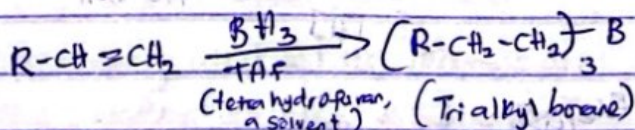 R-CH=CH₂ BH₃ THF > (R-CH₂-CH₂)₃ B
(tetrahydrofuran, a solvent) (Trialkyl borane)